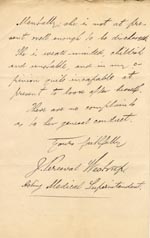 Mentally, she is not at pre-
sent well enough to be discharged.
She is weak minded, childish
and unstable, and in my o-
pinion quite incapable at
present to look after herself.
There are no complaints
as to her general conduct.
Yours faithfully
J. Percival Westrup
Acting Medical Superintendent.